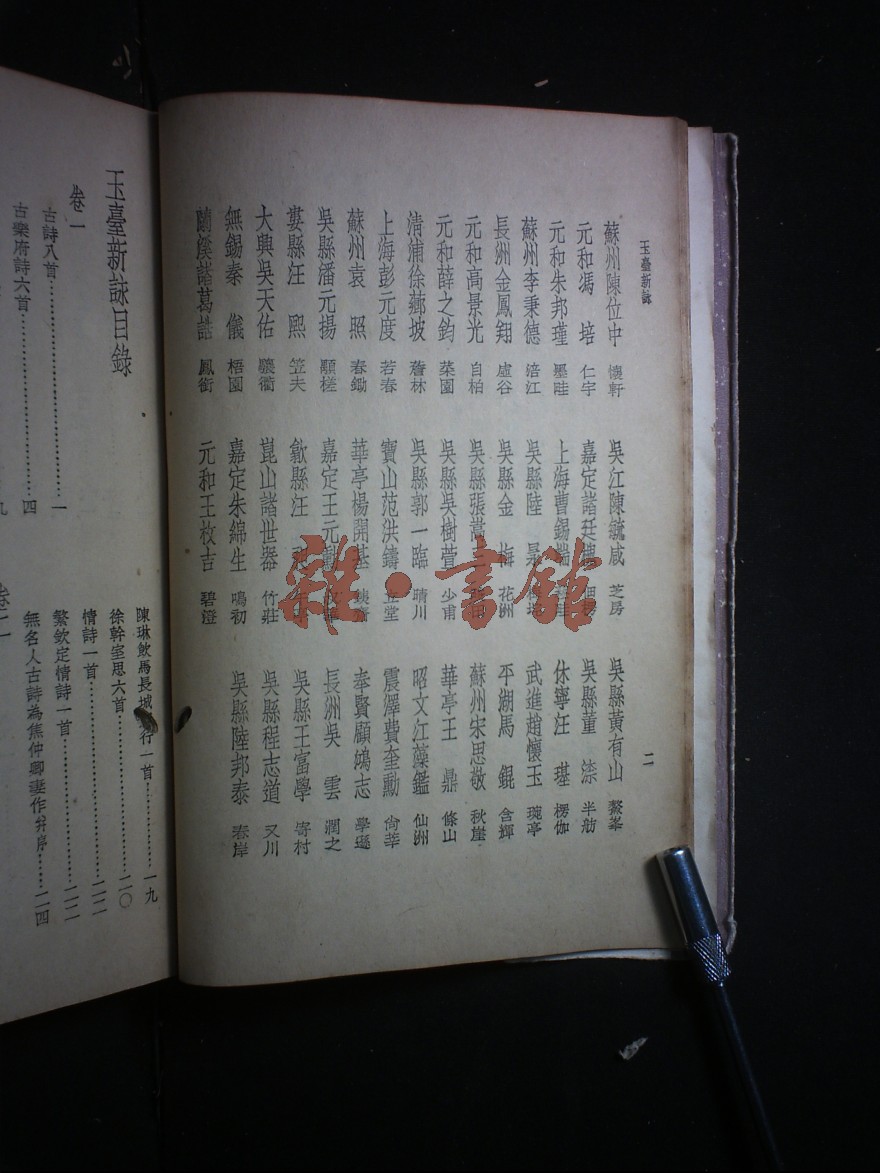 玉臺新詠
二
蘇州陳位中 懷軒
元和馮 培 仁宇
元和朱邦瑾 墨畦
蘇州李秉德 涪江
長洲金鳳翔 虛谷
元和高景光 自柏
元和薛之鈞 葉園
清浦徐薌坡 薝林
上海彭元度 若春
蘇州袁 照 春鋤
吳縣潘元揚 顒槎
婁縣汪 熙 笠夫
大興吳天佑 驤衢
無錫秦 儀 梧園
蘭溪諸葛誥 鳳銜
吳江陳毓咸 芝房
嘉定諸廷
上海曹錫端
吳縣陸
吳縣金 梅 花洲
吳縣張嵩
吳縣吳樹萱 少甫
吳縣郭一臨 晴川
寶山范洪鑄 立堂
華亭楊開基
嘉定王元勳
歙縣汪
崑山諸世器 竹莊
嘉定朱綿生 鳴初
元和王枚吉 碧澄
吳縣黃有山 鰲峯
吳縣董 漆 半舫
休寧汪 璂 楞伽
武進趙懷玉 琬亭
平湖馬 錕 含輝
蘇州宋思敬 秋崖
華亭王 鼎 條山
昭文江藻鑑 仙洲
震澤費奎勳 尙莘
奉賢顧鴻志 學遜
長洲吳 雲 潤之
吳縣王富學 寄村
吳縣程志道 又川
吳縣陸邦泰 春岸
玉臺新詠目錄
卷一
古詩八首……………………一
古樂府詩六首………………四
九
陳琳飲馬長城 行一首………一九
徐幹室思六首………………二〇
情詩一首……………………二二
繁欽定情詩一首……………二二
無名人古詩為焦仲卿妻作幷序……二四
卷二
雜·書館